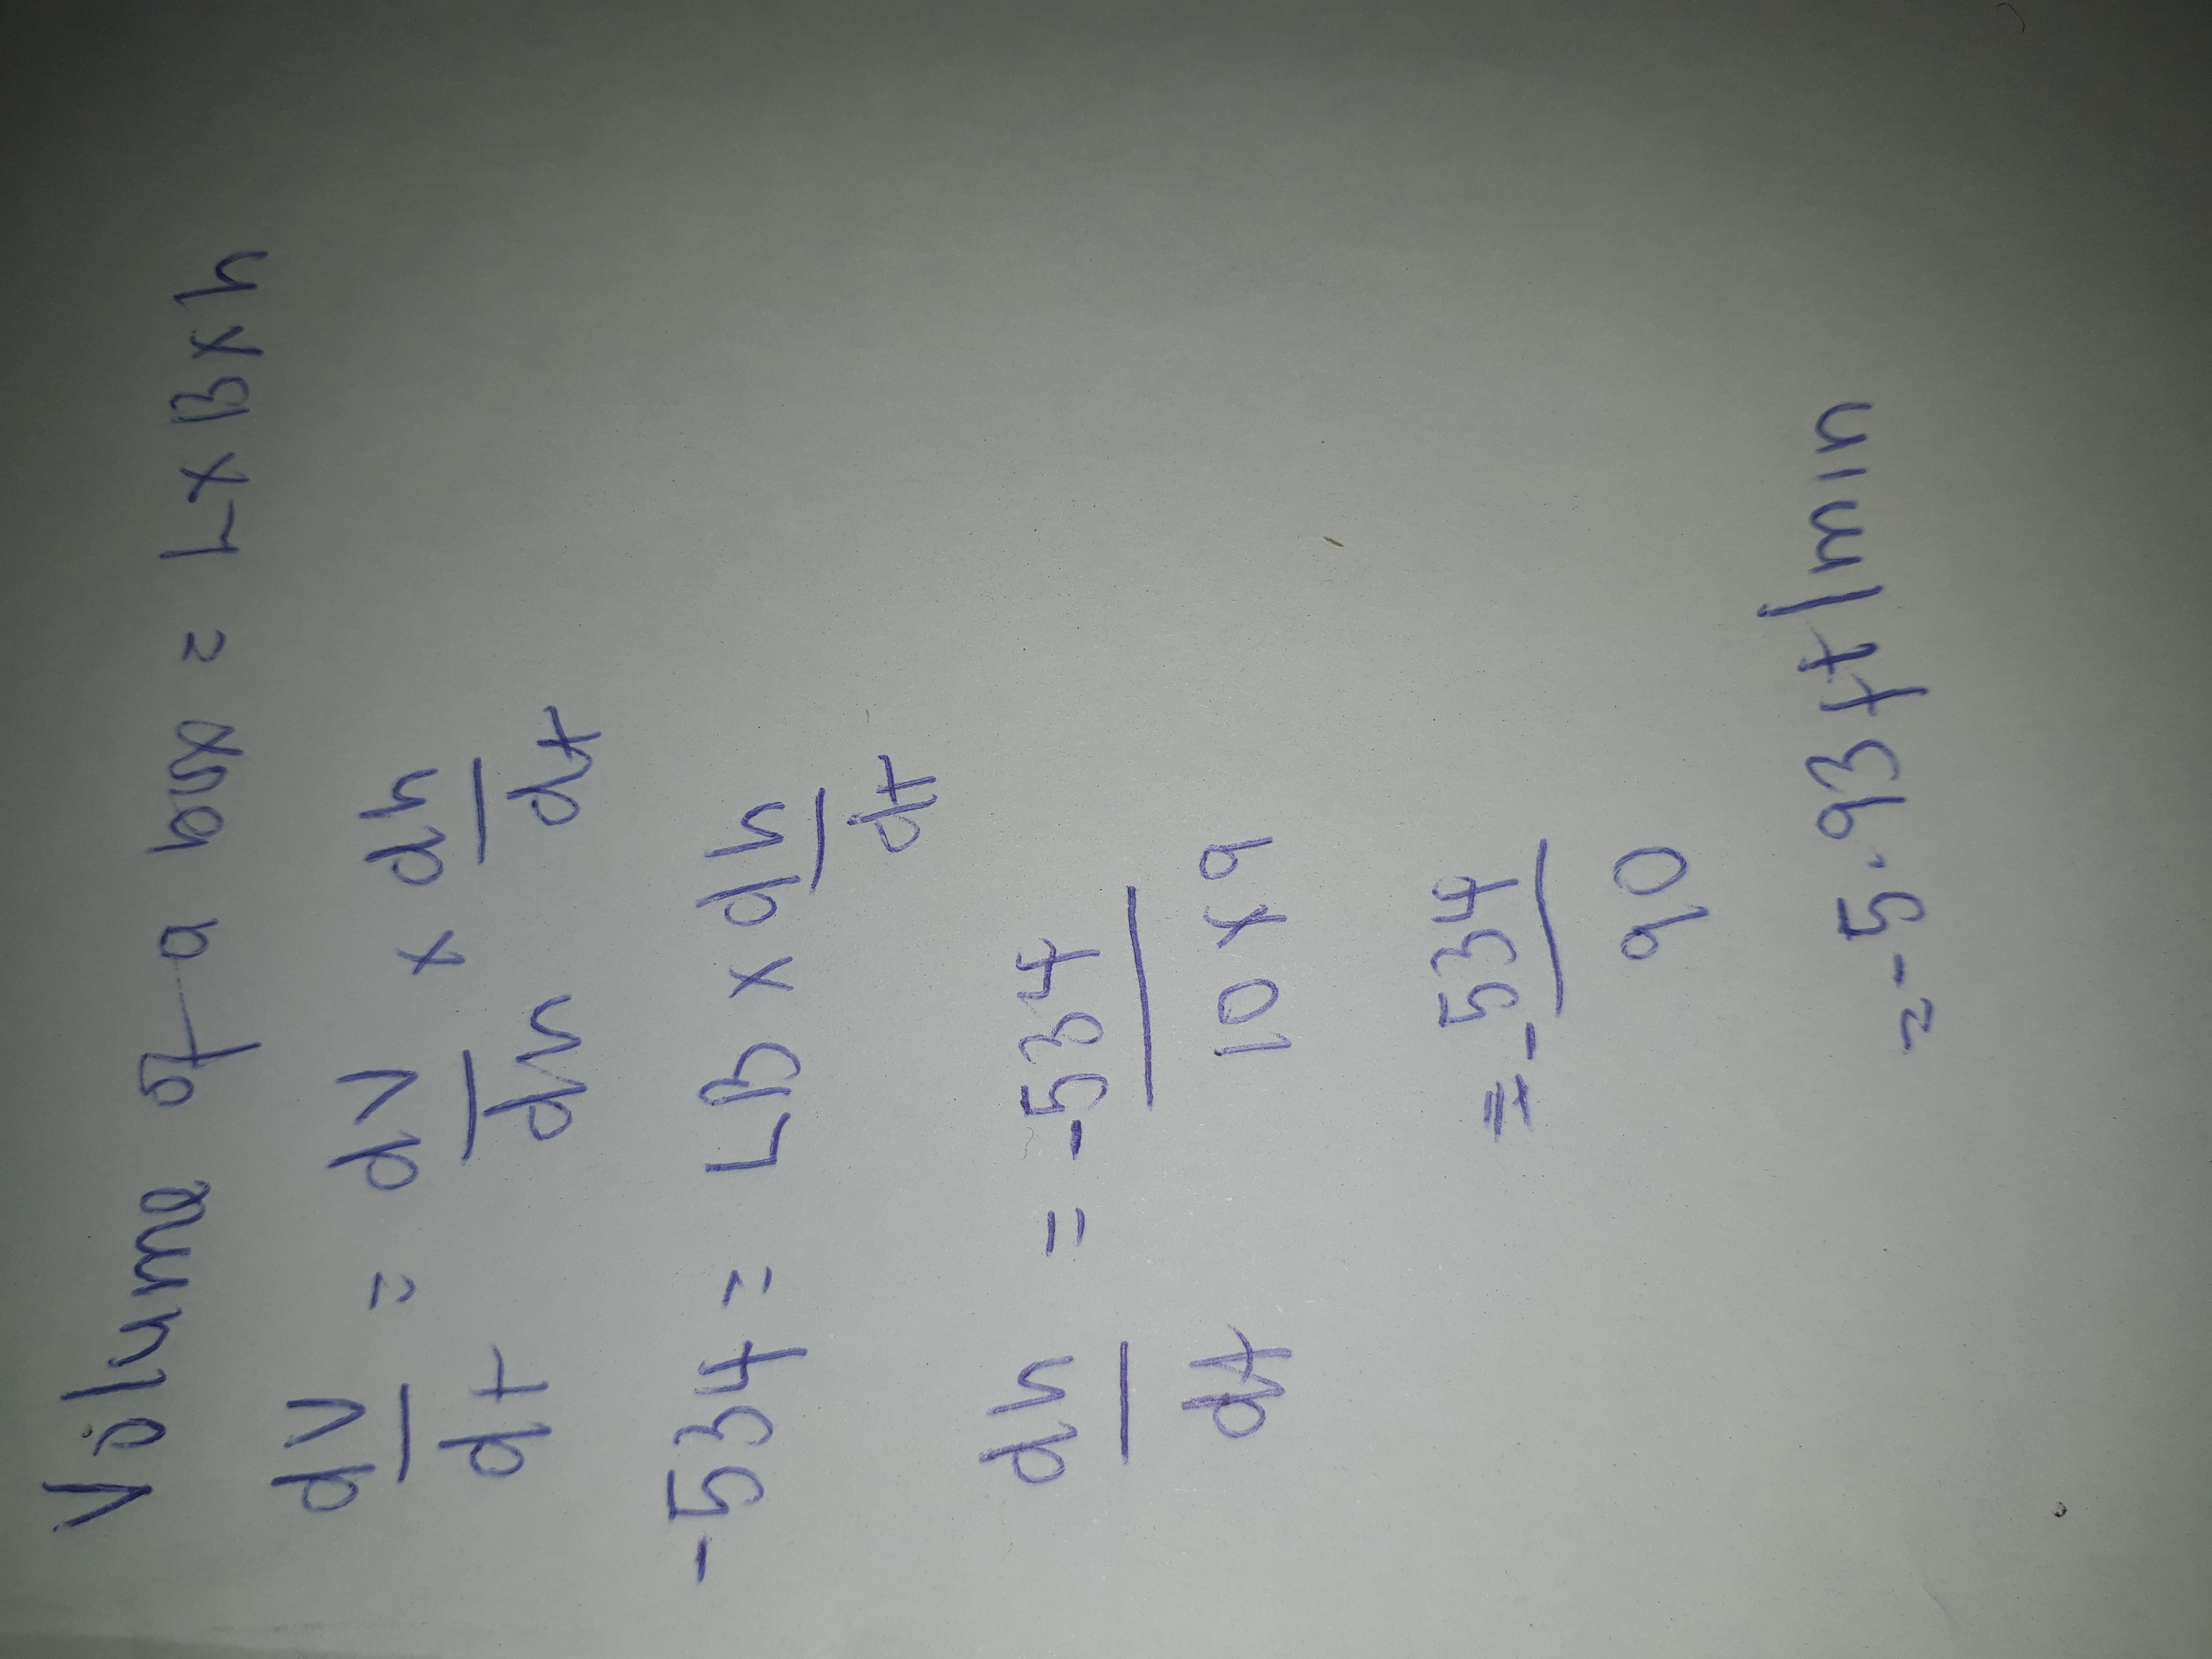 Volume of a box = L x B x h
dV/dt = dV/dh x dh/dt
-534 = LB x dh/dt
dh/dt = -534/10 x 9
= -534/90
= -5.93 ft/min